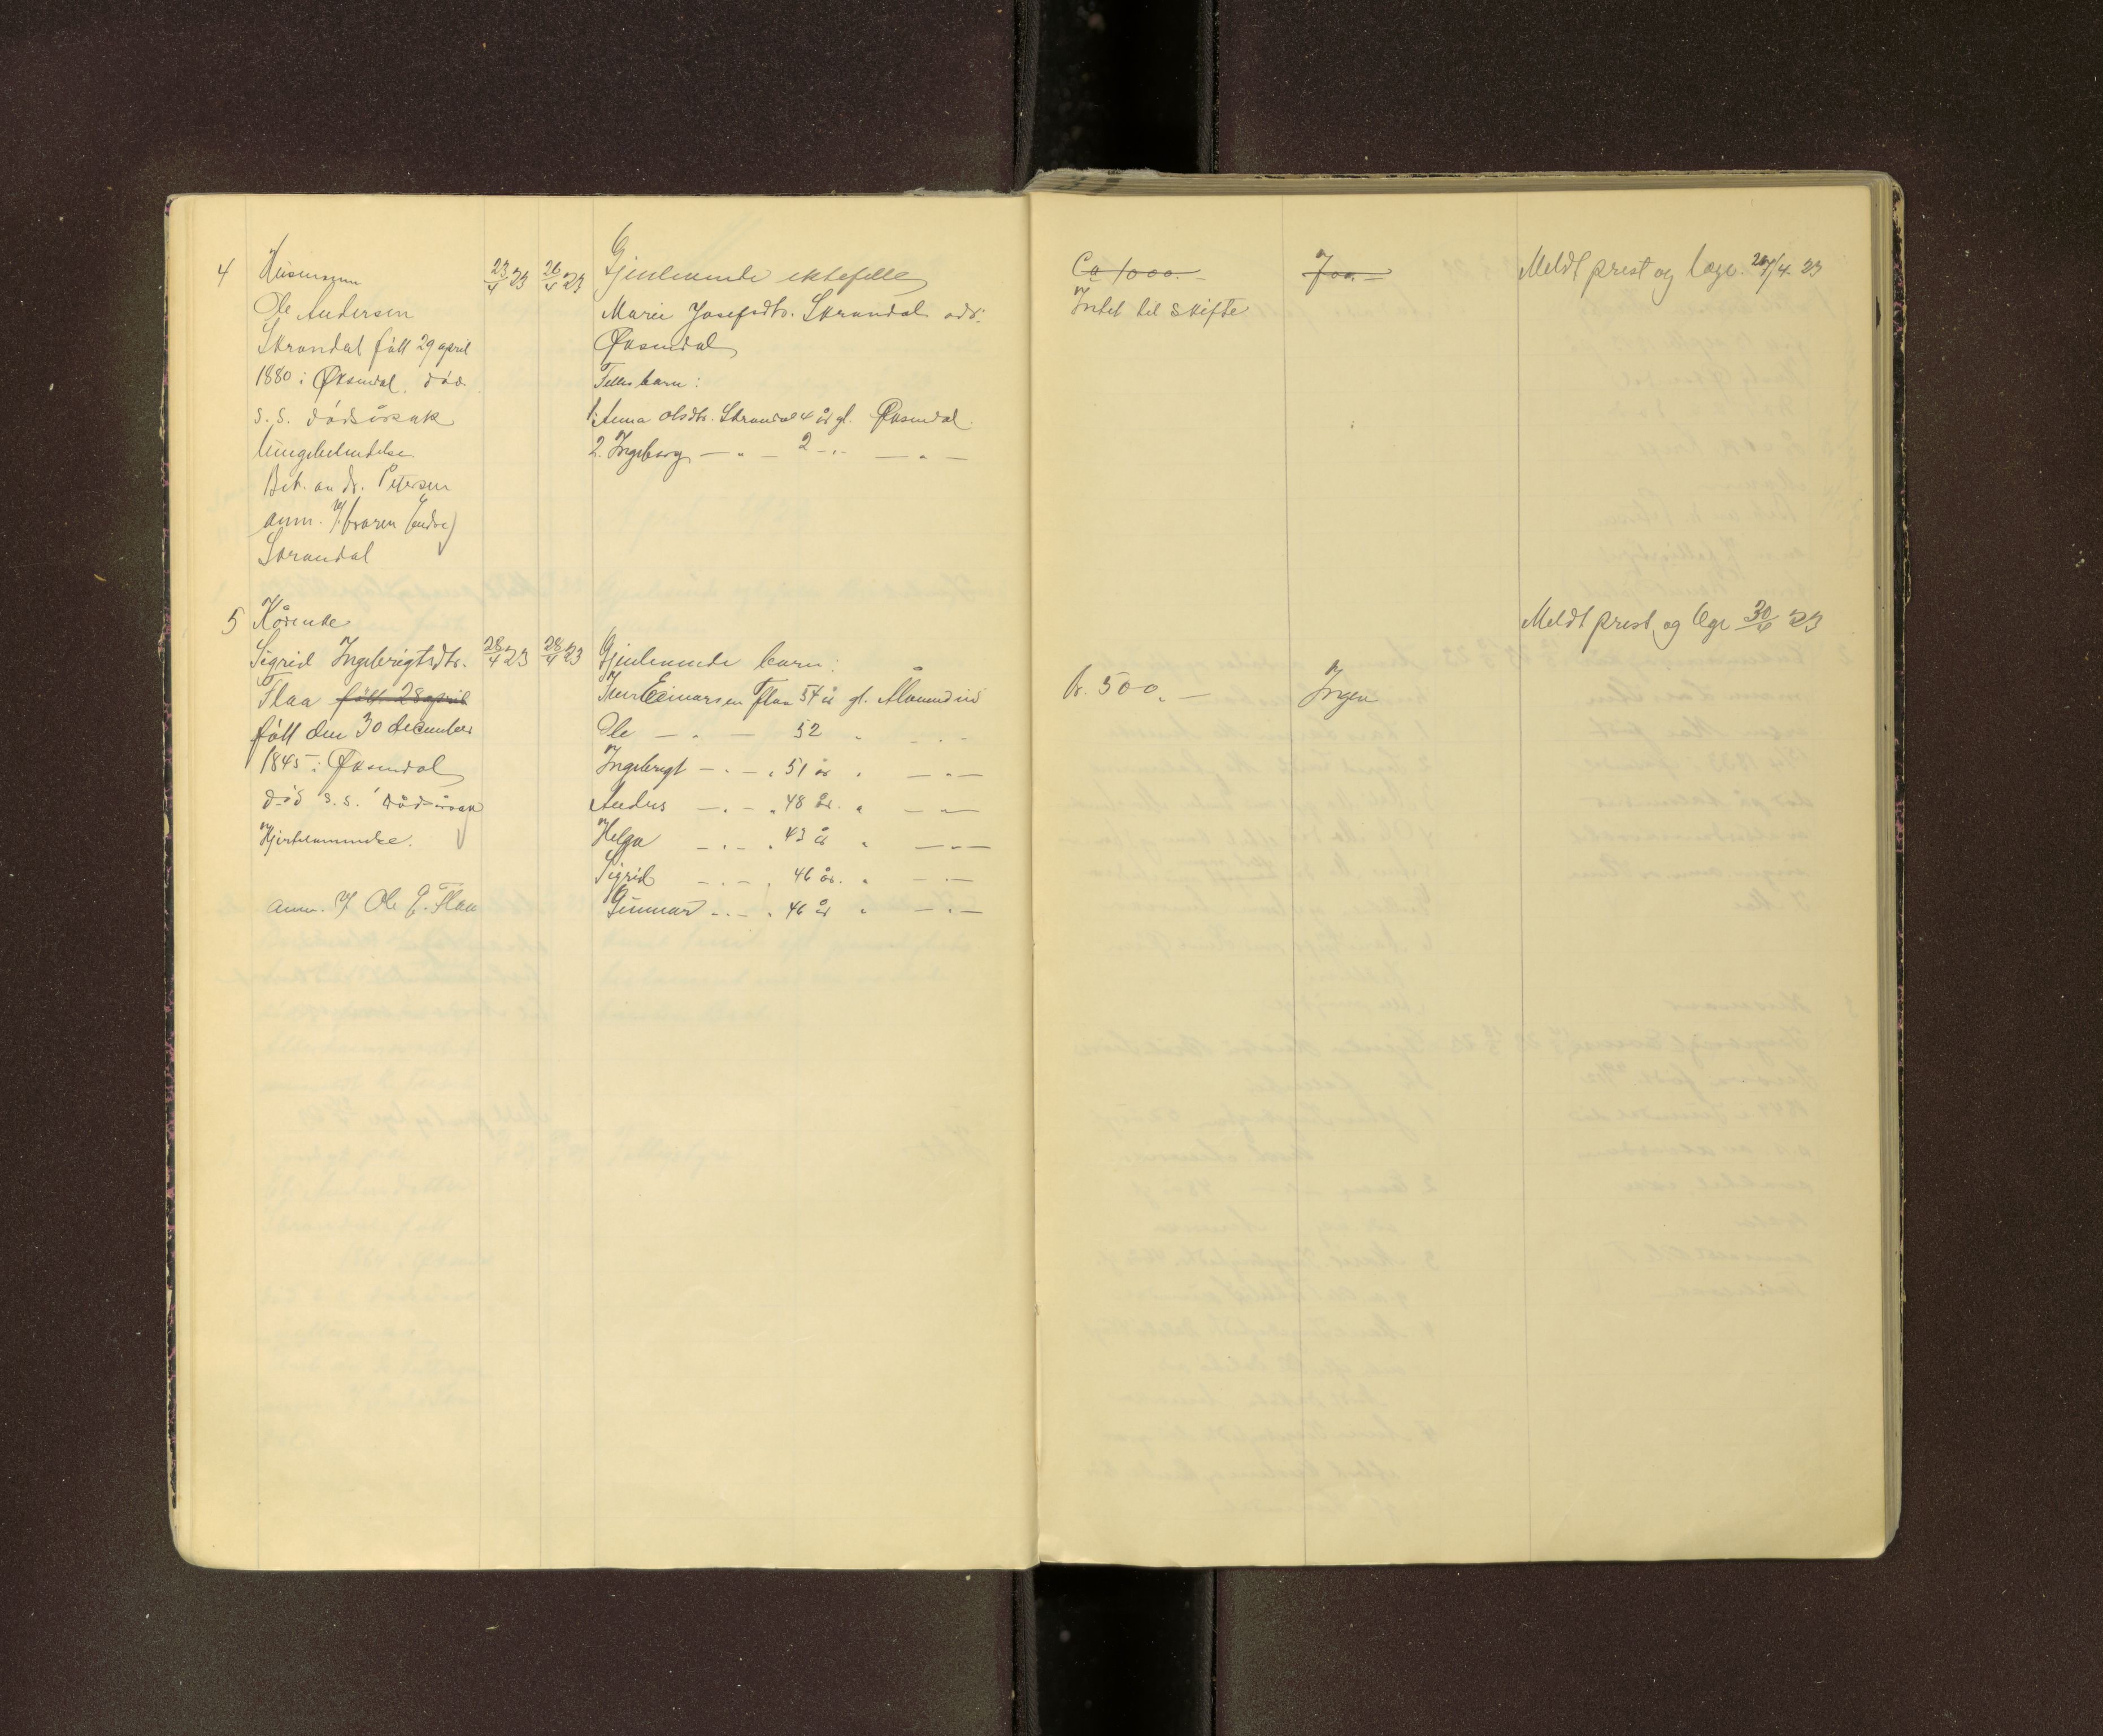 4
Husmann
Ole Andersen
Skrondal født 29 april
1880 i Øksendal. død
s. s. dødsårsak
lungebetendelse
Bek. av dr. Petersen
anm. v/ broren Endre
Skrondal
23/4 23
26/4 23
Gjenlevende ektefelle
Marie Josefsdtr. Skrondal adr.
Øksendal
Felles barn:
1. Anna Olsdtr. Skrondal 4 år gl. Øksendal.
2. Ingeborg — „ — 2 — „ — — „ —
Ca 1000.—
Intet til skifte
700.—
Meldt prest og læge. 27/4. 23
5
Kårenke
Sigrid Ingebrigtsdtr.
Flaa født 28 april
født den 30 december
1845 i Øksendal
død s. s. dødsårsak
Hjertelammelse.
anm. v/ Ole E. Flaa
28/4 23
28/4 23
Gjenlevende barn:
Iver Einarsen Flaa 54 år gl. Ålvundeid
Ole — „ — 52 „ — „ —
Ingebrigt — „ — „ 51 år „ — „ —
Anders — „ — „ 48 år. „ — „ —
Helga — „ — „ 43 år „ — „ —
Sigrid — „ — „ 46 år. „ — „ —
Gunnar — „ — „ 46 år „ — „ —
kr. 500.—
Ingen
Meldt prest og læge 30/4 23